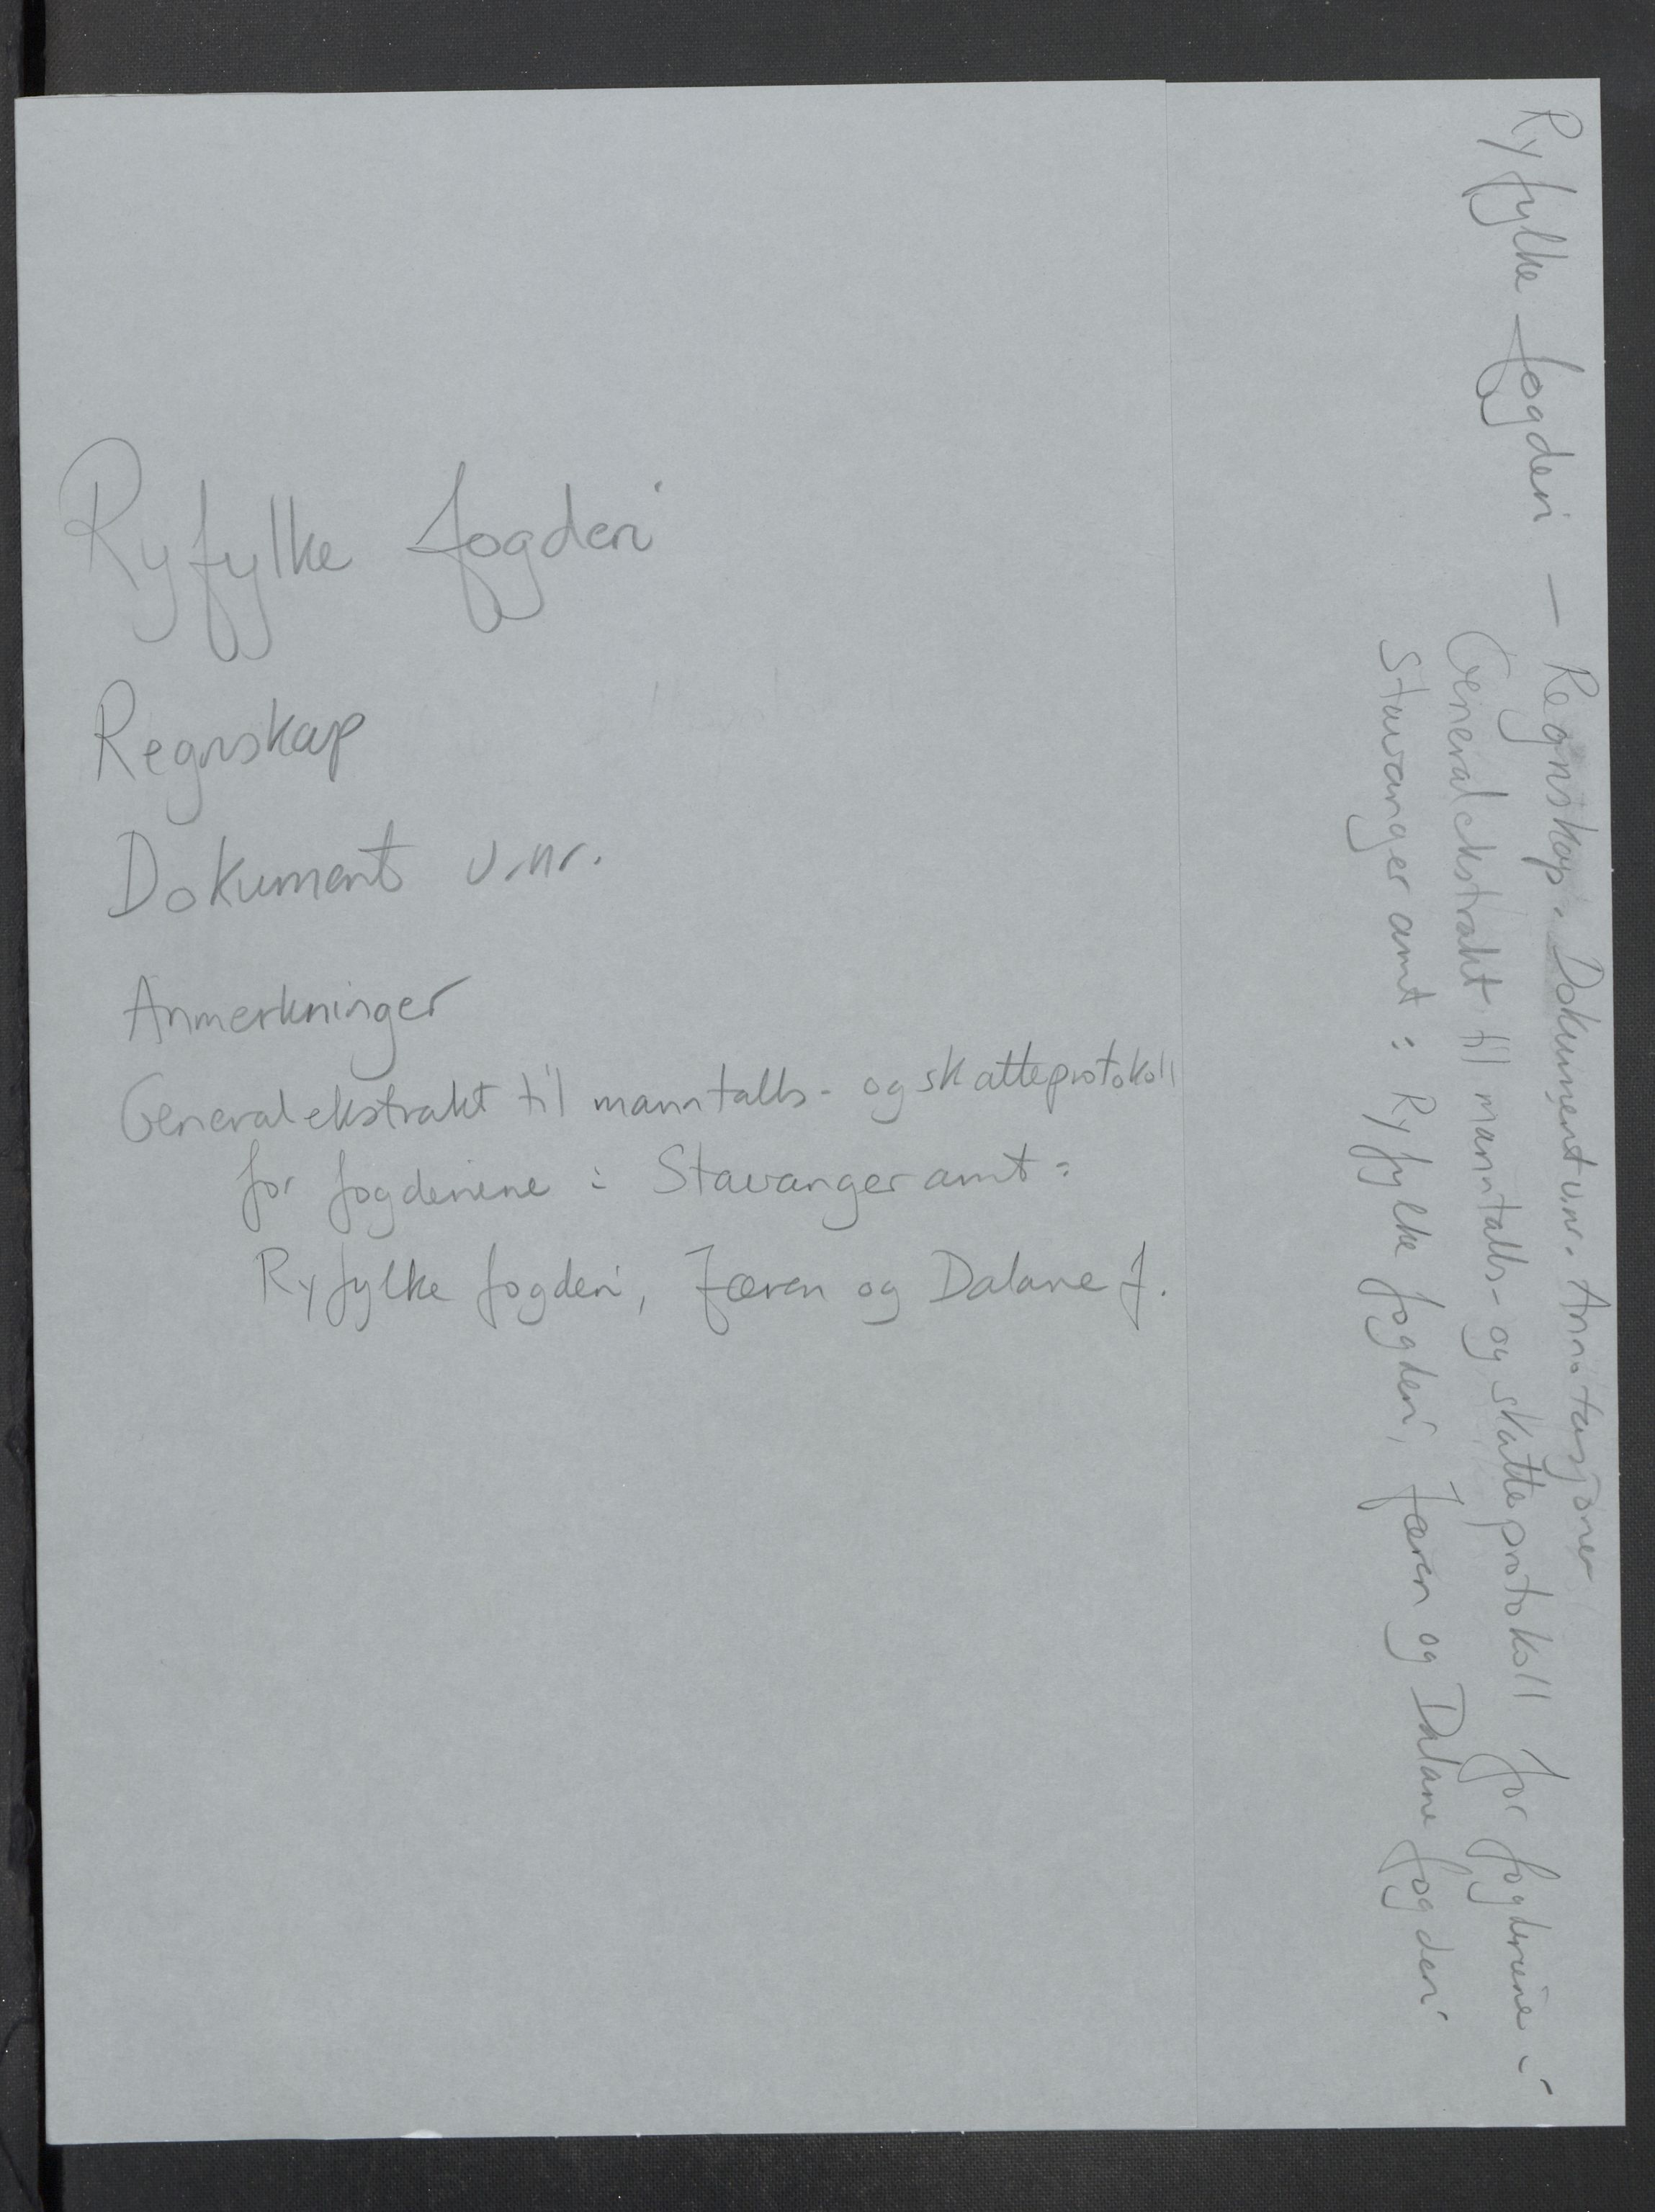 Ryfylke fogderi
Regnskap
Dokument u.nr.
Anmerkninger
Generalekstrakt til manntalls- og skatteprotokoll
for fogderiene i Stavanger amt:
Ryfylke fogderi, Jæren og Dalane f.
Ryfylke fogderi — Regnskap. Dokument u.nr. Annotasjoner
Generalekstrakt til manntalls- og skatteprotokoll for fogderiene i
Stavanger amt: Ryfylke fogderi, Jæren og Dalane fogderi